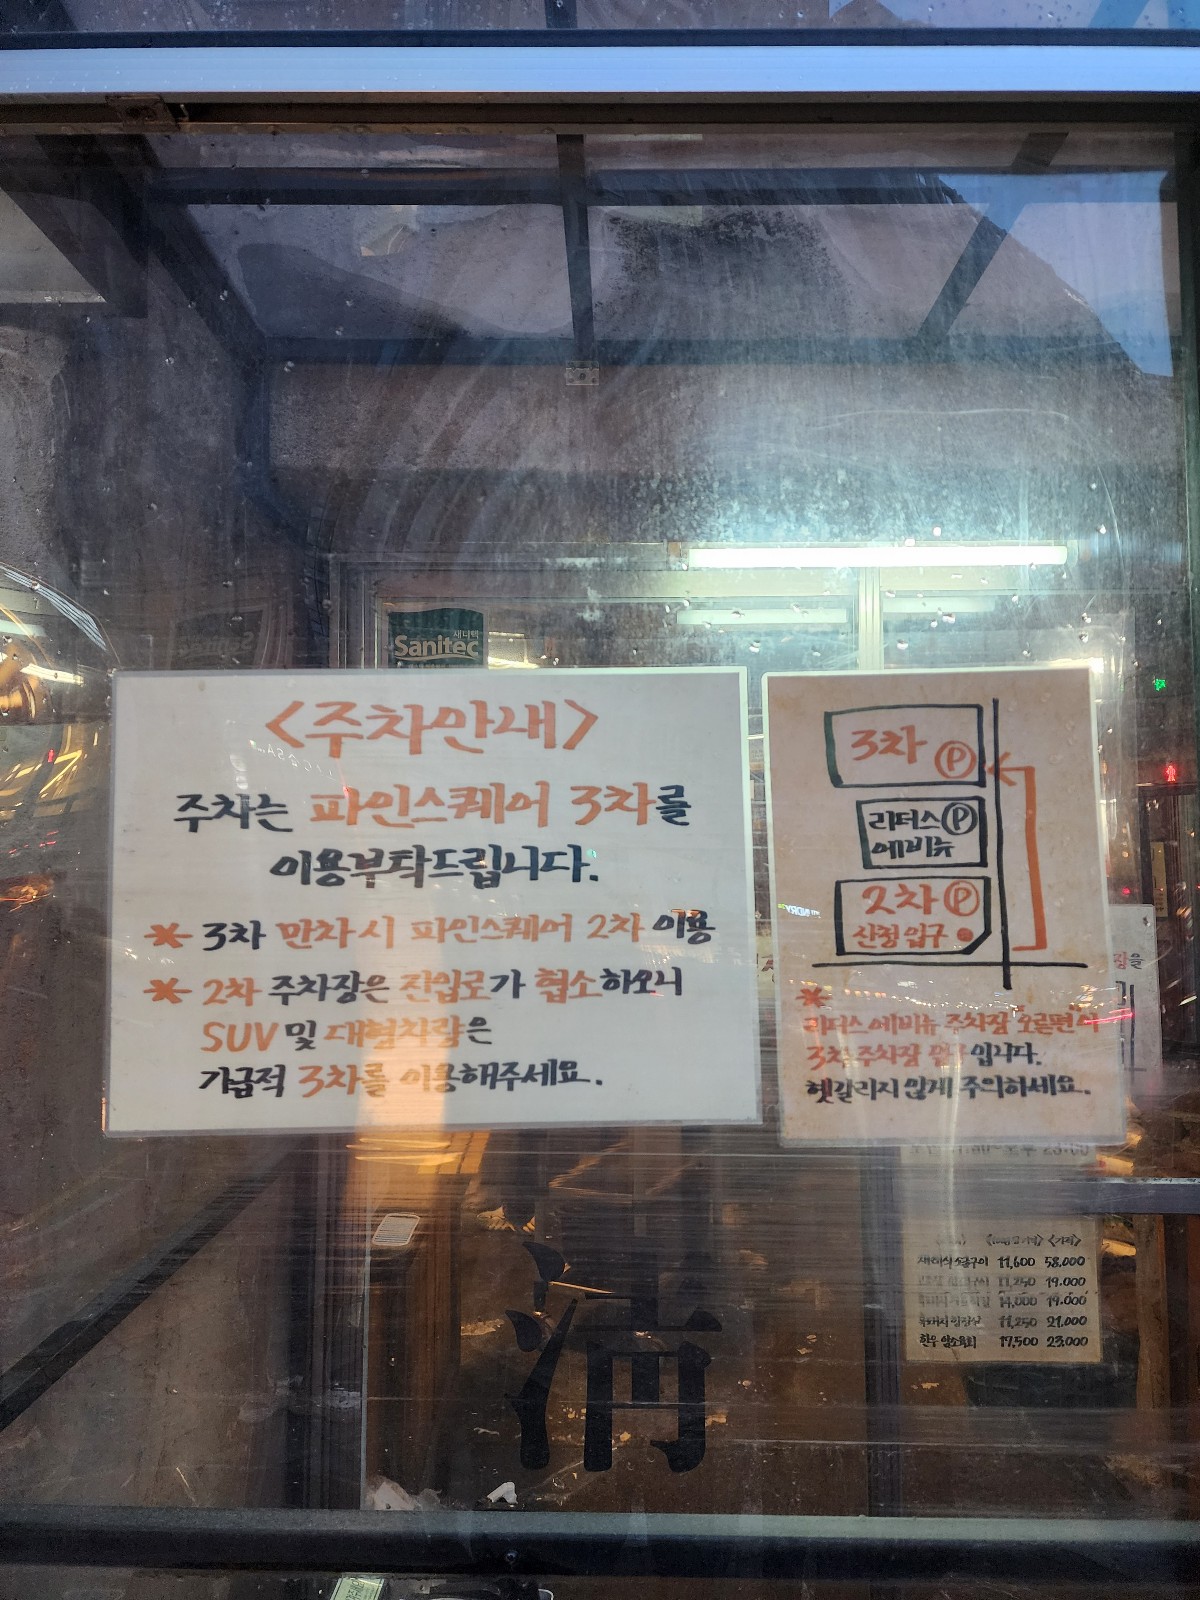 새니텍
Sanitec
<주차안내>
주차는 파인스퀘어 3차를
이용부탁드립니다.
* 3차 만차시 파인스퀘어 2차 이용
* 2차 주차장은 진입로가 협소하오니
SUV 및 대형차량은
가급적 3차를 이용해주세요.
3차 P
리더스 P
에비뉴
2차 P
산청 입구
*
리더스에비뉴 주차장 "오른편"이
3차 주차장 입구입니다.
헷갈리지 않게 주의하세요.
<가격>
11,600 58,000
11,250 19,000
14,000 19,000
11,250 21,000
한우 암소육회 17,500 23,000